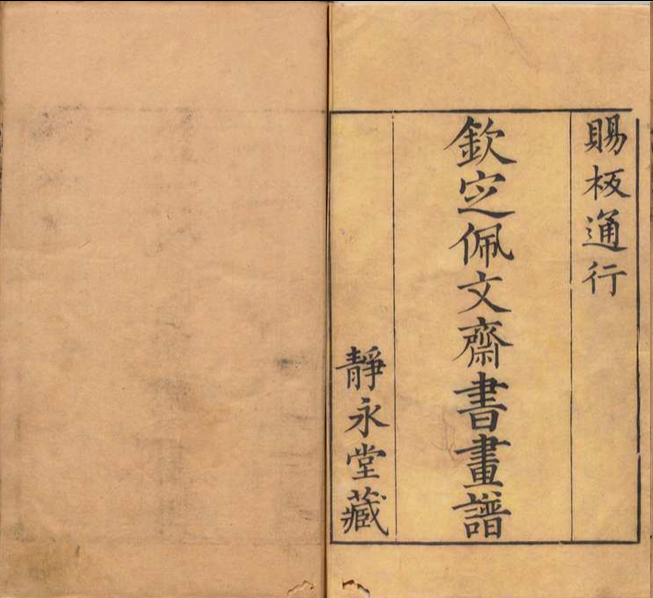 賜板通行
欽定佩文齋書畫譜
靜永堂藏